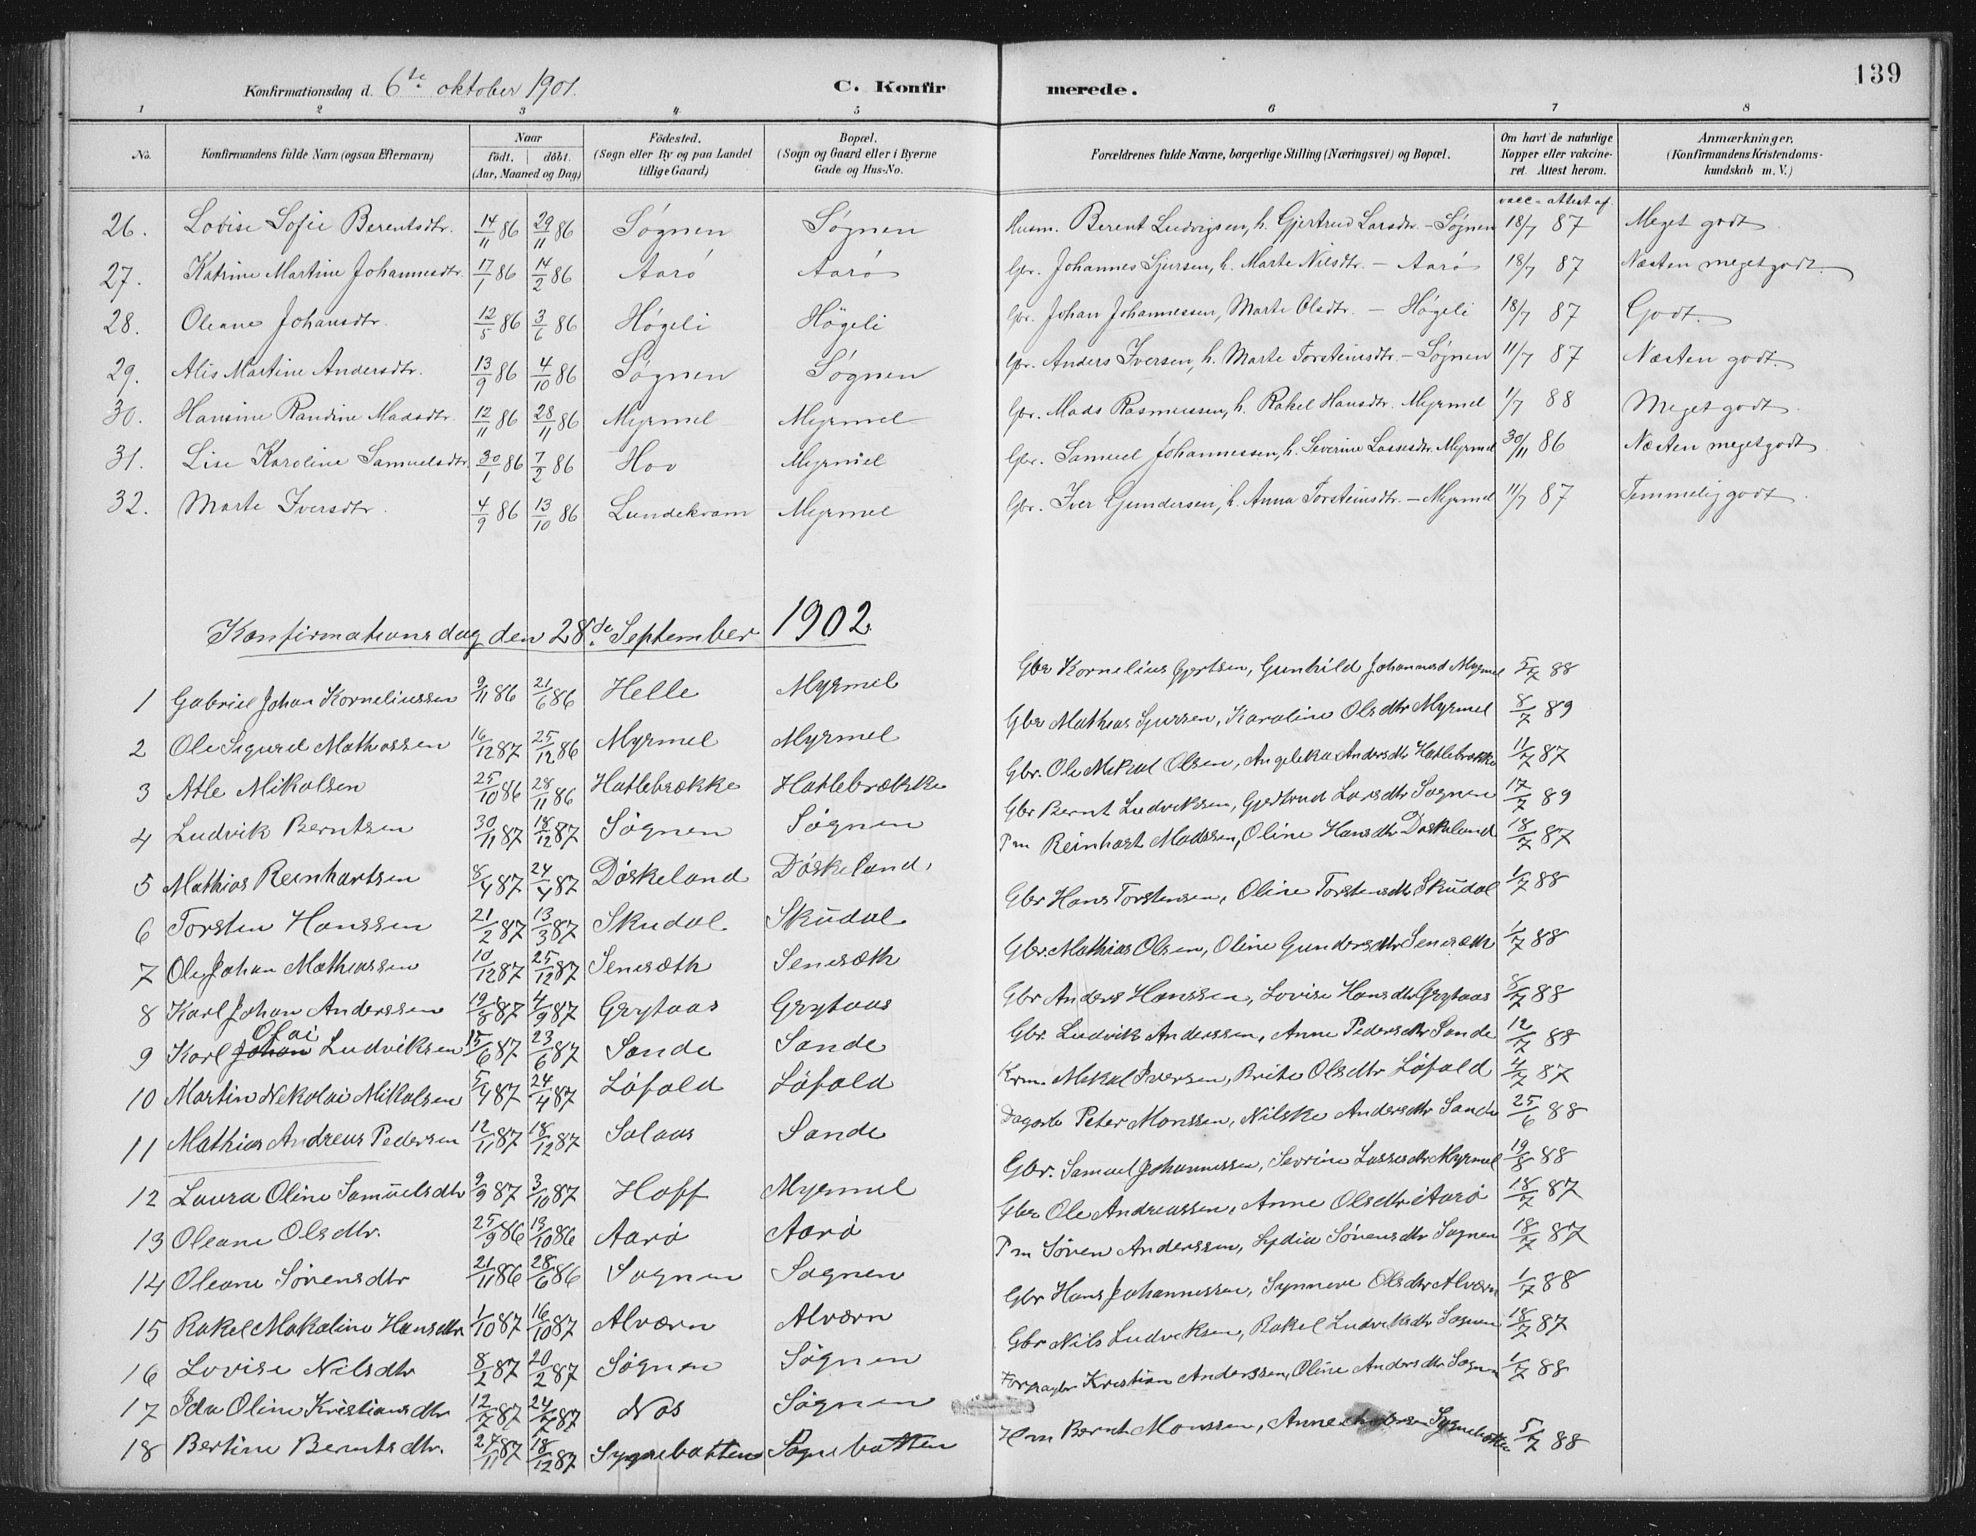 139
Konfirmationsdag d. 6te oktober 1901. C. Konfirmerede.
1 2 3 4 5 6 7 8
No. Konfirmandens fulde Navn (ogsaa Efternavn) Naar født. døbt. (Aar, Maaned og Dag) Födested. (Sogn eller By og paa Landet tillige Gaard) Bopæl. (Sogn og Gaard eller i Byerne Gade og Hus-No. Forældrenes fulde Navne, borgerlige Stilling (Næringsvei) og Bopæl. Om havt de naturlige Kopper eller vakcineret. Attest herom. Anmærkninger. (Konfirmandens Kristendomskundskab m. V.)
vacc. attest af
26. Lovise Sofie Berentsdtr. 14/11 86 29/11 86 Søgnen Søgnen Husm. Berent Ludvigsen, h. Gjertrud Larsdtr. - Søgnen 18/7 87 Meget godt
27. Katrine Martine Johannesdtr. 17/1 86 14/2 86 Aarø Aarø Gbr. Johannes Sjursen, h. Marte Nilsdtr. - Aarø 18/7 87 Næsten meget godt.
28. Oleane Johansdtr. 12/5 86 3/6 86 Høgeli Högeli Gbr. Johan Johannessen, Marte Olsdtr. - Høgeli 18/7 87 Godt.
29. Alis Martine Andersdtr. 13/9 86 4/10 86 Søgnen Søgnen Gbr. Anders Iversen, h. Marte Torsteinsdtr. - Søgnen 11/7 87 Næsten godt.
30. Hansine Randine Madsdtr. 12/11 86 28/11 86 Myrmel Myrmel Gbr. Mads Rasmussen, h. Rakel Hansdtr. Myrmel 1/7 88 Meget godt.
31. Lise Karoline Samuelsdtr. 30/1 86 7/2 86 Hov Myrmel Gbr. Samuel Johannessen, h. Severine Lassesdtr. Myrmel 30/11 86 Næsten meget godt
32. Marte Iversdtr. 4/9 86 13/10 86 Lundekvam Myrmel Gbr. Iver Gundersen, h. Anna Torsteinsdtr. - Myrmel 11/7 87 Temmelig godt.
Konfirmationsdag den 28de September 1902
1 Gabriel Johan Korneliussen 9/11 86 21/6 86 Helle Myrmel Gbr Kornelius Gjertsen, Gunhild Johannesd Myrmel 5/7 88
2 Ole Sigurd Mathiassen 16/12 87 25/12 86 Myrmel Myrmel Gbr Mathias Sjursen, Karoline Olsdtr Myrmel 8/7 89
3 Atle Mikalsen 25/10 86 28/11 86 Hatlebrække Hatlebrække Gbr. Ole Mikal Olsen, Angelika Andersdtr Hatlebrække 11/7 87
4 Ludvik Berntsen 30/11 87 18/12 87 Søgnen Søgnen Gbr Bernt Ludviksen, Gjertrud Larsdtr Søgnen 17/7 89
5 Mathias Reinhartsen 8/4 87 24/4 87 Døskeland Døskeland, Pm Reinhart Madssen, Oline Hansdtr Døskeland 18/7 87
6 Torsten Hanssen 21/2 87 13/3 87 Skudal Skudal Gbr Hans Torstensen, Oline Torstensdtr Skudal 1/7 88
7 Ole Johan Mathiassen 10/12 87 25/12 87 Senesæth Senesæth Gbr. Mathias Olsen, Oline Gundersdtr Senesæth 1/7 88
8 Karl Johan Anderssen 19/8 87 4/9 87 Grytaas Grytaas Gbr Anders Hanssen, Lovise Hansdtr Grytaas 8/7 88
9 Karl Johan Olai Ludviksen 15/6 87 23/6 87 Sande Sande Gbr. Ludvik Anderssen, Anne Pedersdtr Sande 12/7 88
10 Martin Nekolai Mikalsen 5/4 87 24/4 87 Løfald Løfald Krm. Mikal Iversen, Brite Olsdtr Løfald 4/7 87
11 Mathias Andreas Pedersen 12/11 87 18/12 87 Solaas Sande Dagarb Peter Monssen, Nilske Andersdtr Sande 25/6 88
12 Laura Oline Samuelsdtr 9/9 87 3/10 87 Hoff Myrmel Gbr. Samuel Johannessen, Sevrine Lassesdtr Myrmel 19/8 88
13 Oleane Olsdtr. 25/9 86 13/10 86 Aarø Aarø Gbr Ole Andreassen, Anne Olsdtr Aarø 18/7 87
14 Oleane Sørensdtr 21/11 86 28/6 86 Søgnen Søgnen Pm Søren Anderssen, Lydia Sørensdtr Søgnen 18/7 87
15 Rakel Makaline Hansdtr 1/10 87 16/10 87 Alværn Alværn Gbr Hans Johannessen, Synneve Olsdtr Alværn 1/7 88
16 Lovise Nilsdtr 8/2 87 20/2 87 Søgnen Søgnen Gbr Nils Ludviksen, Rakel Ludviksdtr Søgnen 18/7 87
17 Ida Oline Kristiansdtr 12/7 87 24/7 87 Nøs Søgnen Forpagtr Kristian Anderssen, Oline Andersdtr Søgnen 1/7 88
18 Bertine Berntsdtr. 24/11 87 18/12 87 Sygnebotten Søgnebotten Hm Bernt Monssen, Anne Sygnebotten 5/7 88